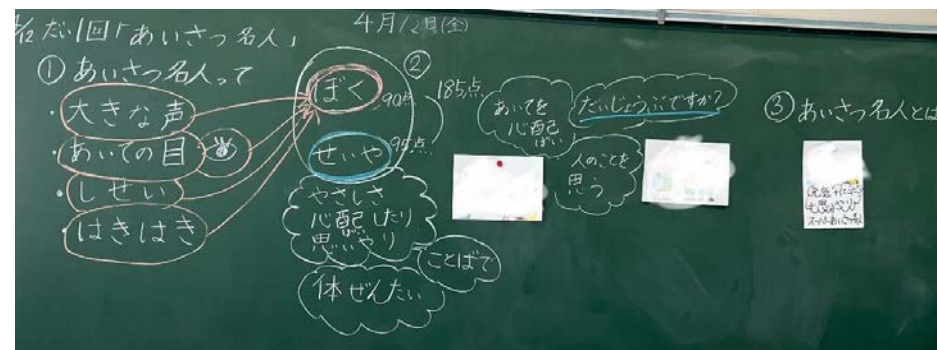 4/12 だい1回「あいさつ名人」
4月12日(金)
① あいさつ名人って
・大きな声
・あいての目
・しせい
・はきはき
②
ぼく
90点
せいや
95点
185点
やさしさ
心配したり
思いやり
ことばで
体ぜんたい
あいてを
心配
ぱい
だいじょうぶですか?
人のことを
思う
③ あいさつ名人とは